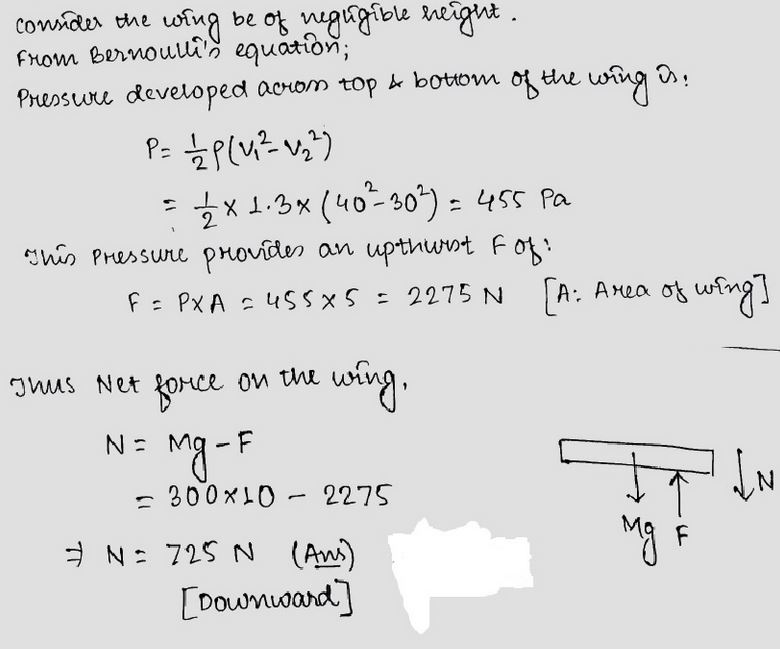 consider the wing be of negligible height.
From Bernoulli's equation;
Pressure developed across top & bottom of the wing is:
P = 1/2 ρ(V₁² - V₂²)
= 1/2 × 1.3 × (40² - 30²) = 455 Pa
This Pressure provides an upthurst F of:
F = P×A = 455×5 = 2275 N [A: Area of wing]
Thus Net force on the wing,
N = Mg - F
= 300×10 - 2275
⇒ N = 725 N (Ans)
[Downward]
Mg F
N